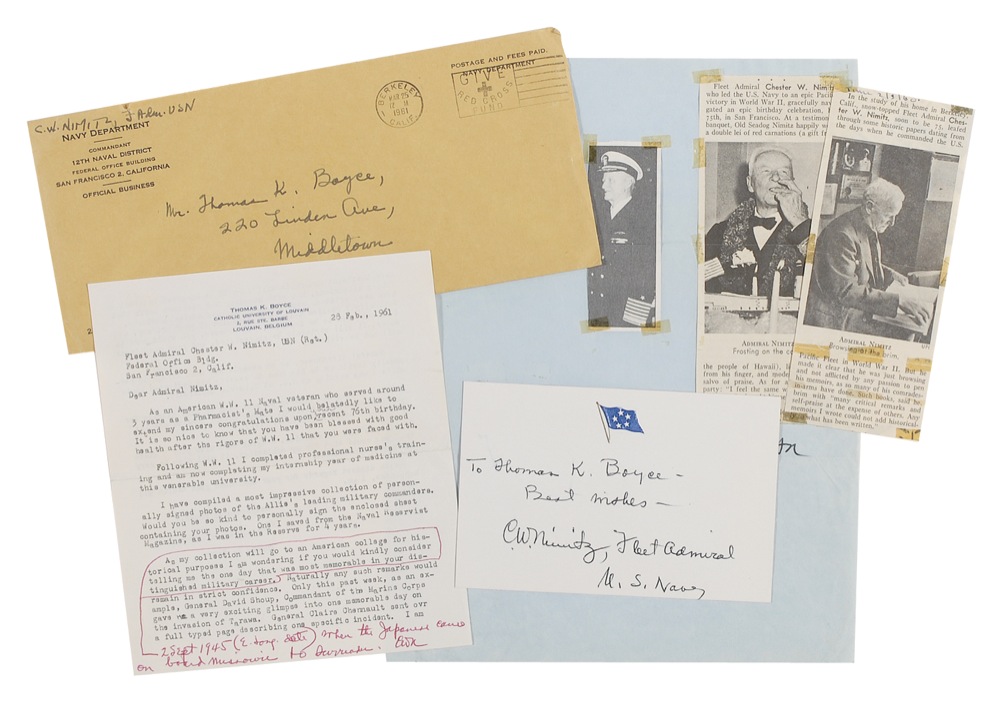 C.W. NIMITZ, F Adm. USN
NAVY DEPARTMENT
COMMANDANT
12TH NAVAL DISTRICT
FEDERAL OFFICE BUILDING
SAN FRANCISCO 2, CALIFORNIA
OFFICIAL BUSINESS
POSTAGE AND FEES PAID.
NAVY DEPARTMENT
BERKELEY
1961
CALIF.
GIVE
RED CROSS
Mr. Thomas K. Boyce,
220 Linden Ave,
Middletown
THOMAS K. BOYCE
CATHOLIC UNIVERSITY OF LOUVAIN
2, RUE STE. BARBE
LOUVAIN, BELGIUM
Fleet Admiral Chester W. Nimitz, USN (Ret.)
Federal Office Bldg.
San Francisco 2, Calif.
Dear Admiral Nimitz,
As an American W.W. 11 Naval veteran who served around
3 years as a Pharmacist's Mate I would belatedly like to
extend my sincere congratulations upon recent 76th birthday.
It is so nice to know that you have been blessed with good
health after the rigors of W.W. 11 that you were faced with.
Following W.W. 11 I completed professional nurse's train-
ing and am now completing my internship year of medicine at
this venerable university.
I have compiled a most impressive collection of person-
ally signed photos of the Allie's leading military commanders.
Would you be so kind to personally sign the enclosed sheet
containing your photos. One I saved from the Naval Reservist
Magazine, as I was in the Reserve for 4 years.
As my collection will go to an American college for his-
torical purposes I am wondering if you would kindly consider
telling me the one day that was most memorable in your dis-
tinguished military career. Naturally any such remarks would
remain in strict confidence. Only this past week, as an ex-
ample, General David Shoup, Commandant of the Marine Corps
gave me a very exciting glimpse into one memorable day on
the invasion of Tarawa. General Claire Chennault sent ovr
a full typed page describing one specific incident. I am
2 Sept 1945 (E. Long. date) when the Japanese came
on board Missouri to surrender. CWN
Fleet Admiral Chester W. Nimitz
who led the U.S. Navy to an epic Pacific
victory in World War II, gracefully navi-
gated an epic birthday celebration,
75th, in San Francisco. At a testimonial
banquet, Old Seadog Nimitz happily
a double lei of red carnations (a gift
ADMIRAL NIMITZ
Frosting on the
the people of Hawaii),
from his finger, and
salvo of praise. As for
party: "I feel the same
In the study of his home in Berkeley
Calif., snow-topped Fleet Admiral Ches-
ter W. Nimitz, soon to be 75, leafed
through some historic papers dating from
the days when he commanded the U.S.
ADMIRAL NIMITZ
Browsing at the brim.
Pacific Fleet in World War II. But he
made it clear that he was just browsing
and not afflicted by any passion to pen
his memoirs, as so many of his comrades-
in-arms have done. Such books, said he,
brim with "many critical remarks and
self-praise at the expense of others. Any
memoirs I wrote could not add historical-
what has been written."
To Thomas K. Boyce –
Best wishes –
C.W. Nimitz, Fleet Admiral
U. S. Navy